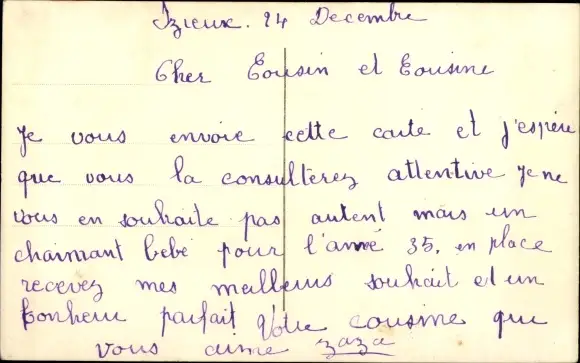 Izieux. 24 Decembre
Cher Cousin et Cousine
Je vous envoie cette carte et j'espère
que vous la consulterez attentive Je ne
vous en souhaite pas autent mais un
charmant bebé pour l'anné 35, en place
recevez mes meilleurs souhait et un
bonheur parfait. Votre cousine que
vous aime zaza